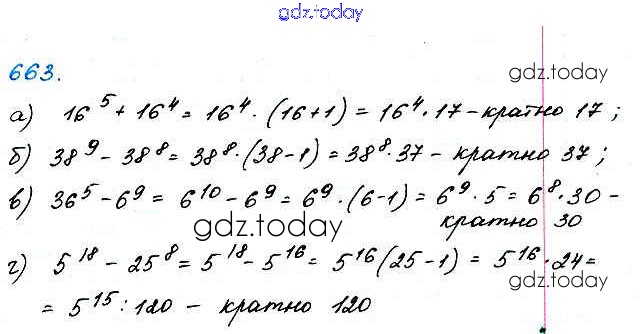 gdz.today
663.
gdz.today
а) 16⁵ + 16⁴ = 16⁴ · (16+1) = 16⁴ · 17 - кратно 17 ;
б) 38⁹ - 38⁸ = 38⁸ · (38-1) = 38⁸ · 37 - кратно 37 ;
в) 36⁵ - 6⁹ = 6¹⁰ - 6⁹ = 6⁹ · (6-1) = 6⁹ · 5 = 6⁸ · 30 -
кратно 30
gdz.today
г) 5¹⁸ - 25⁸ = 5¹⁸ - 5¹⁶ = 5¹⁶(25-1) = 5¹⁶ · 24 =
= 5¹⁵ : 120 - кратно 120
gdz.today